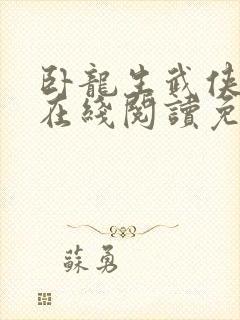 卧龍生武俠
在綫閱讀免
蘇勇